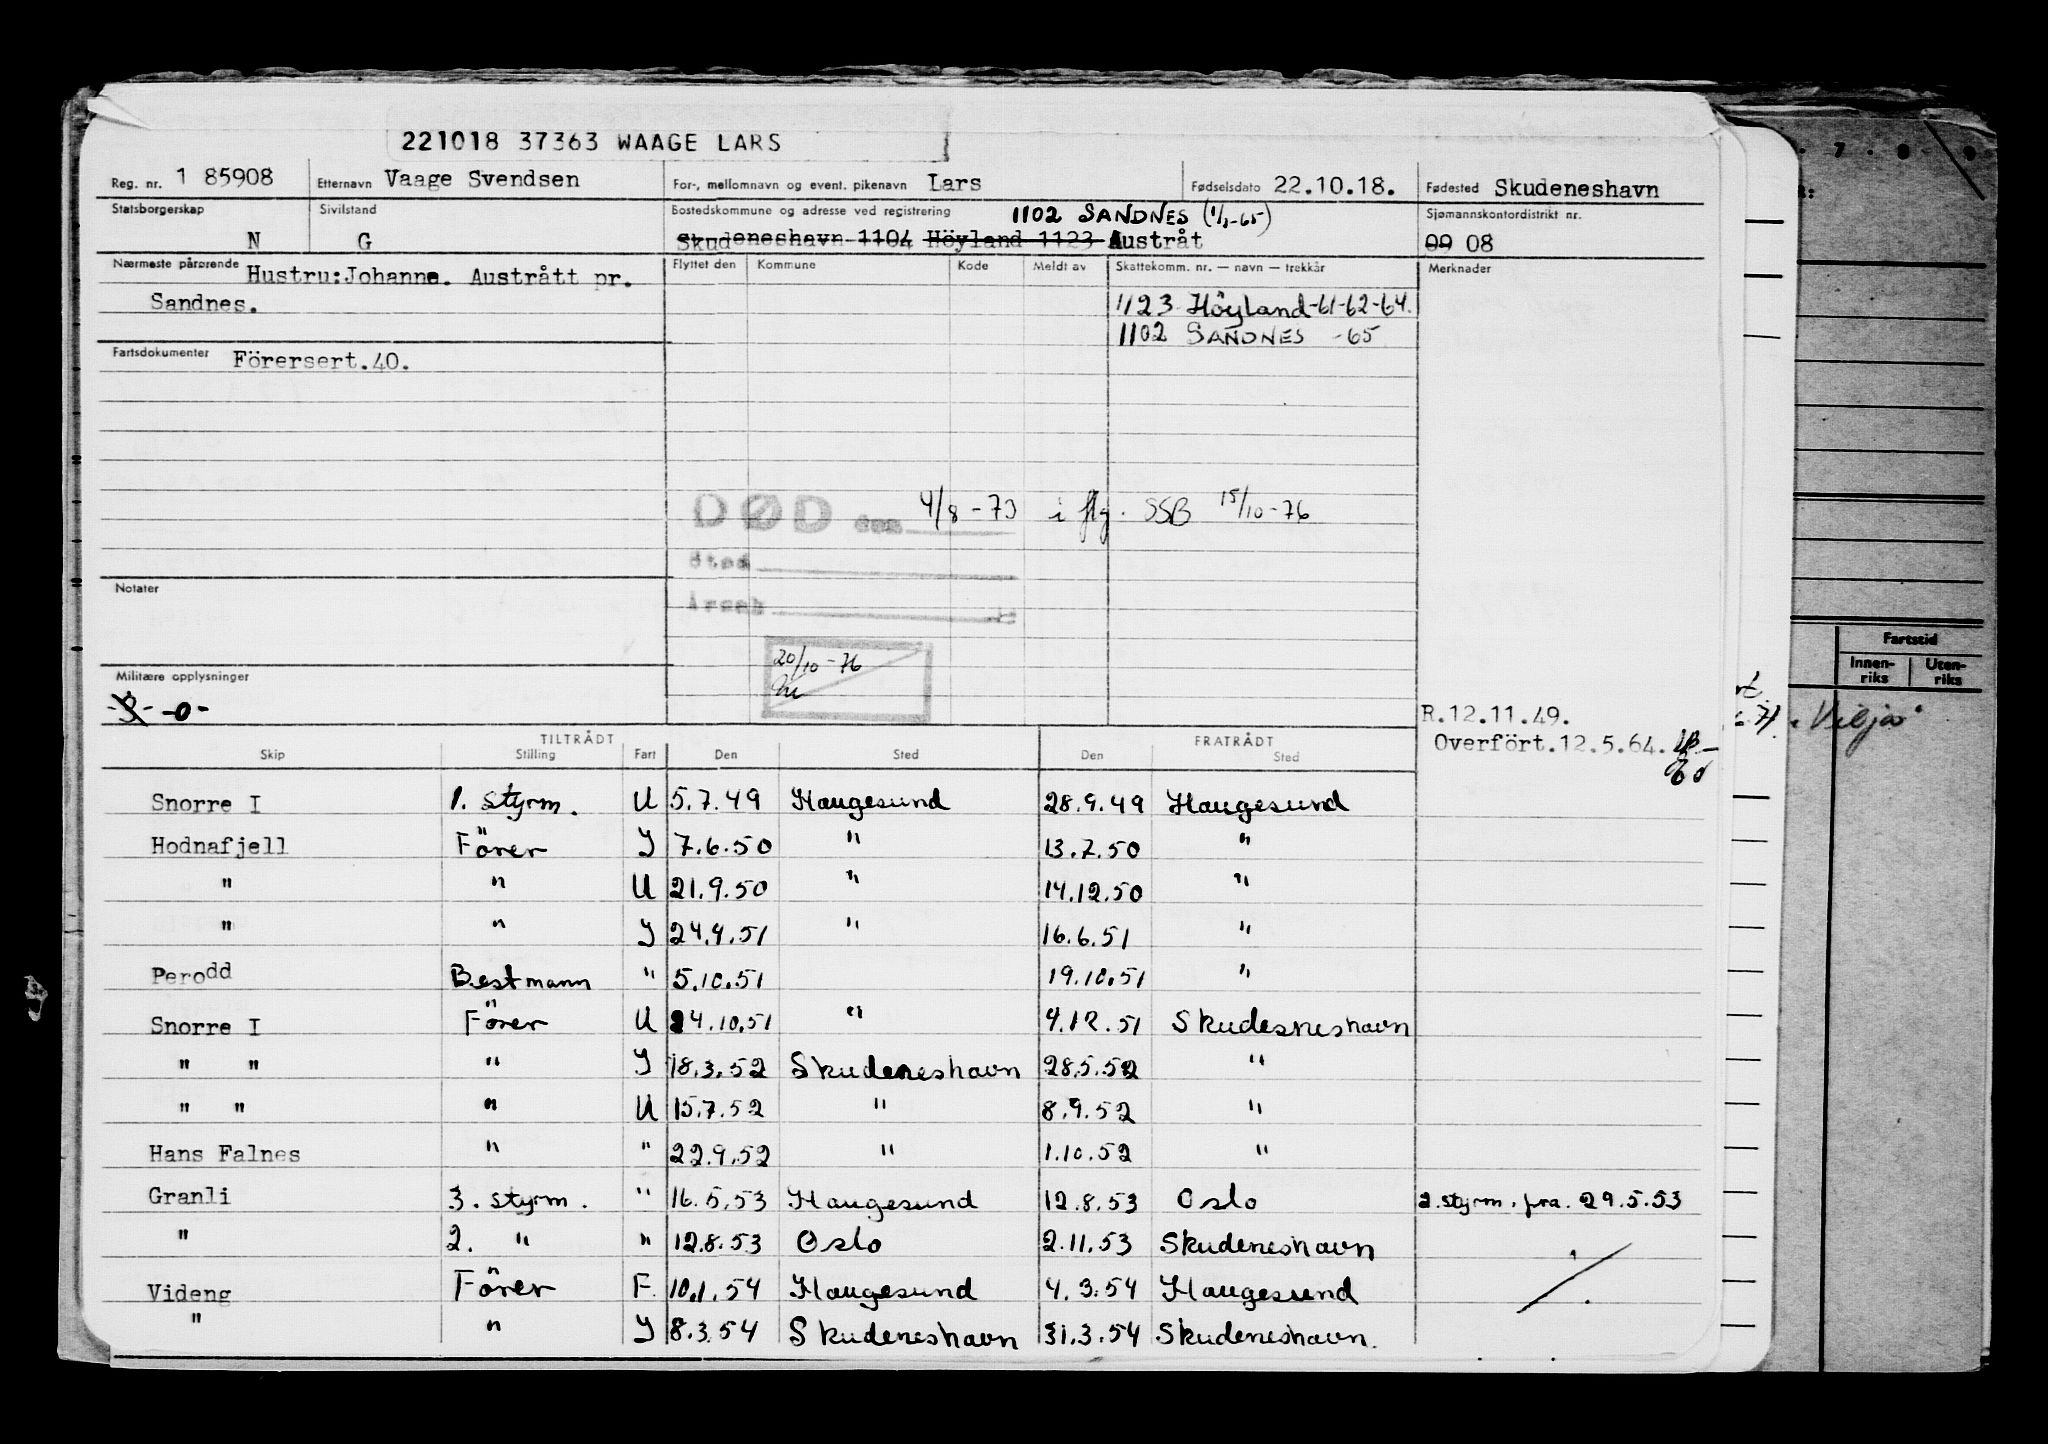 221018 37363 WAAGE LARS
Reg. nr. 1 85908 Etternavn Vaage Svendsen For-, mellomnavn og event. pikenavn Lars Fødselsdato 22.10.18. Fødested Skudeneshavn
Statsborgerskap Sivilstand Bostedskommune og adresse ved registrering 1102 SANDNES (1/1-65) Sjømannskontordistrikt nr.
N G Skudeneshavn 1104 Höyland 1123 Austråt 09 08
Nærmeste pårørende Hustru:Johanne. Austrått pr. Flyttet den Kommune Kode Meldt av Skattekomm. nr. — navn — trekkår Merknader
Sandnes. 1123 Höyland-61-62-64.
1102 SANDNES -65
Fartsdokumenter Förersert.40.
DØD den 4/8-73 i flg. SSB 15/10-76
Sted
Notater
Årsak
20/10-76
Militære opplysninger
-0-
R.12.11.49.
Overfört.12.5.64.
TILTRÅDT FRATRÅDT
Skip Stilling Fart Den Sted Den Sted
Snorre I 1. Styrm. U 5.7.49 Haugesund 28.9.49 Haugesund
Hodnafjell Förer Y 7.6.50 " 13.7.50 "
" " U 21.9.50 " 14.12.50 "
" " Y 24.4.51 " 16.6.51 "
Perodd Bestmann " 5.10.51 19.10.51 "
Snorre I Förer U 24.10.51 " 4.12.51 Skudesneshavn
" " " Y 18.3.52 Skudeneshavn 28.5.52 "
" " " U 15.7.52 " 8.9.52 "
Hans Falnes " " 22.9.52 " 1.10.52 "
Granli 3. Styrm. " 16.5.53 Haugesund 12.8.53 Oslo 2.styrm. fra. 29.5.53
" 2. " " 12.8.53 Oslo 2.11.53 Skudeneshavn
Videng Förer F. 10.1.54 Haugesund 4.3.54 Haugesund
" " Y 8.3.54 Skudeneshavn 31.3.54 Skudeneshavn.
7 8 9
Fartstid
Innen-riks Uten-riks
"Vilja"